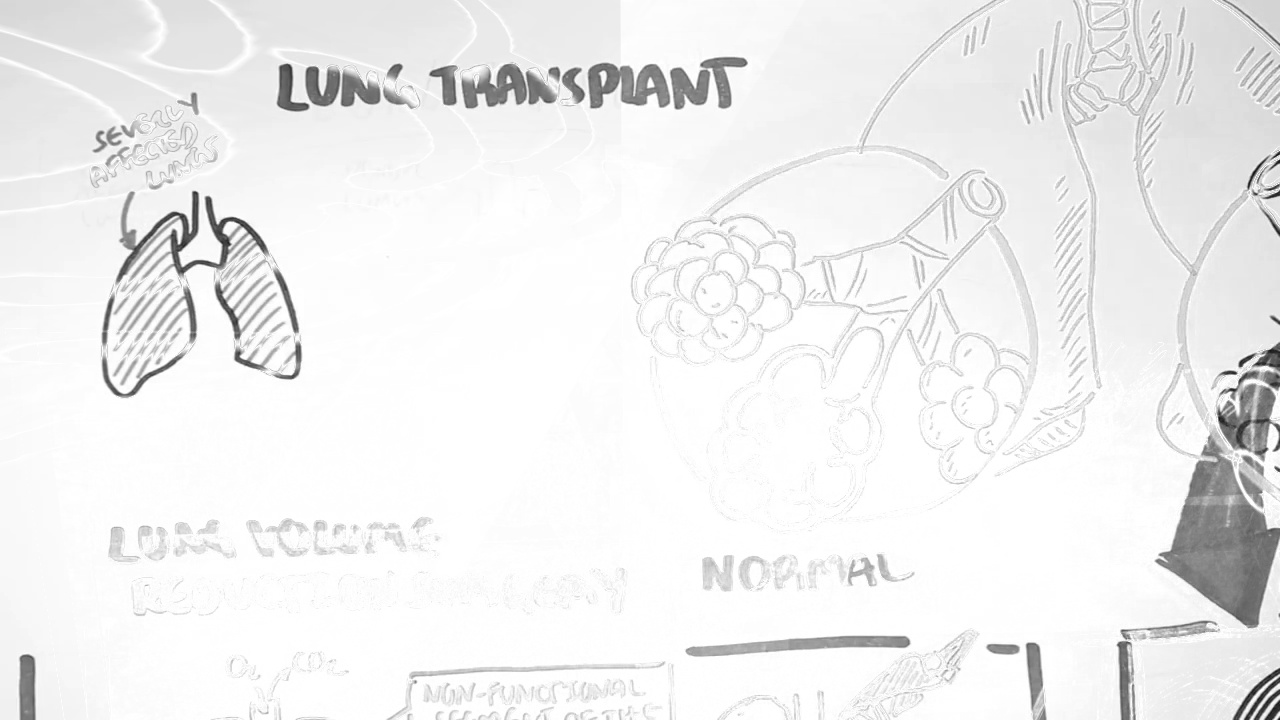 LUNG TRANSPLANT
SEVERELY
AFFECTED
LUNGS
LUNG VOLUME
REDUCTION SURGERY
NORMAL
O₂ CO₂
NON-FUNCTIONAL
SEGMENT OF THE